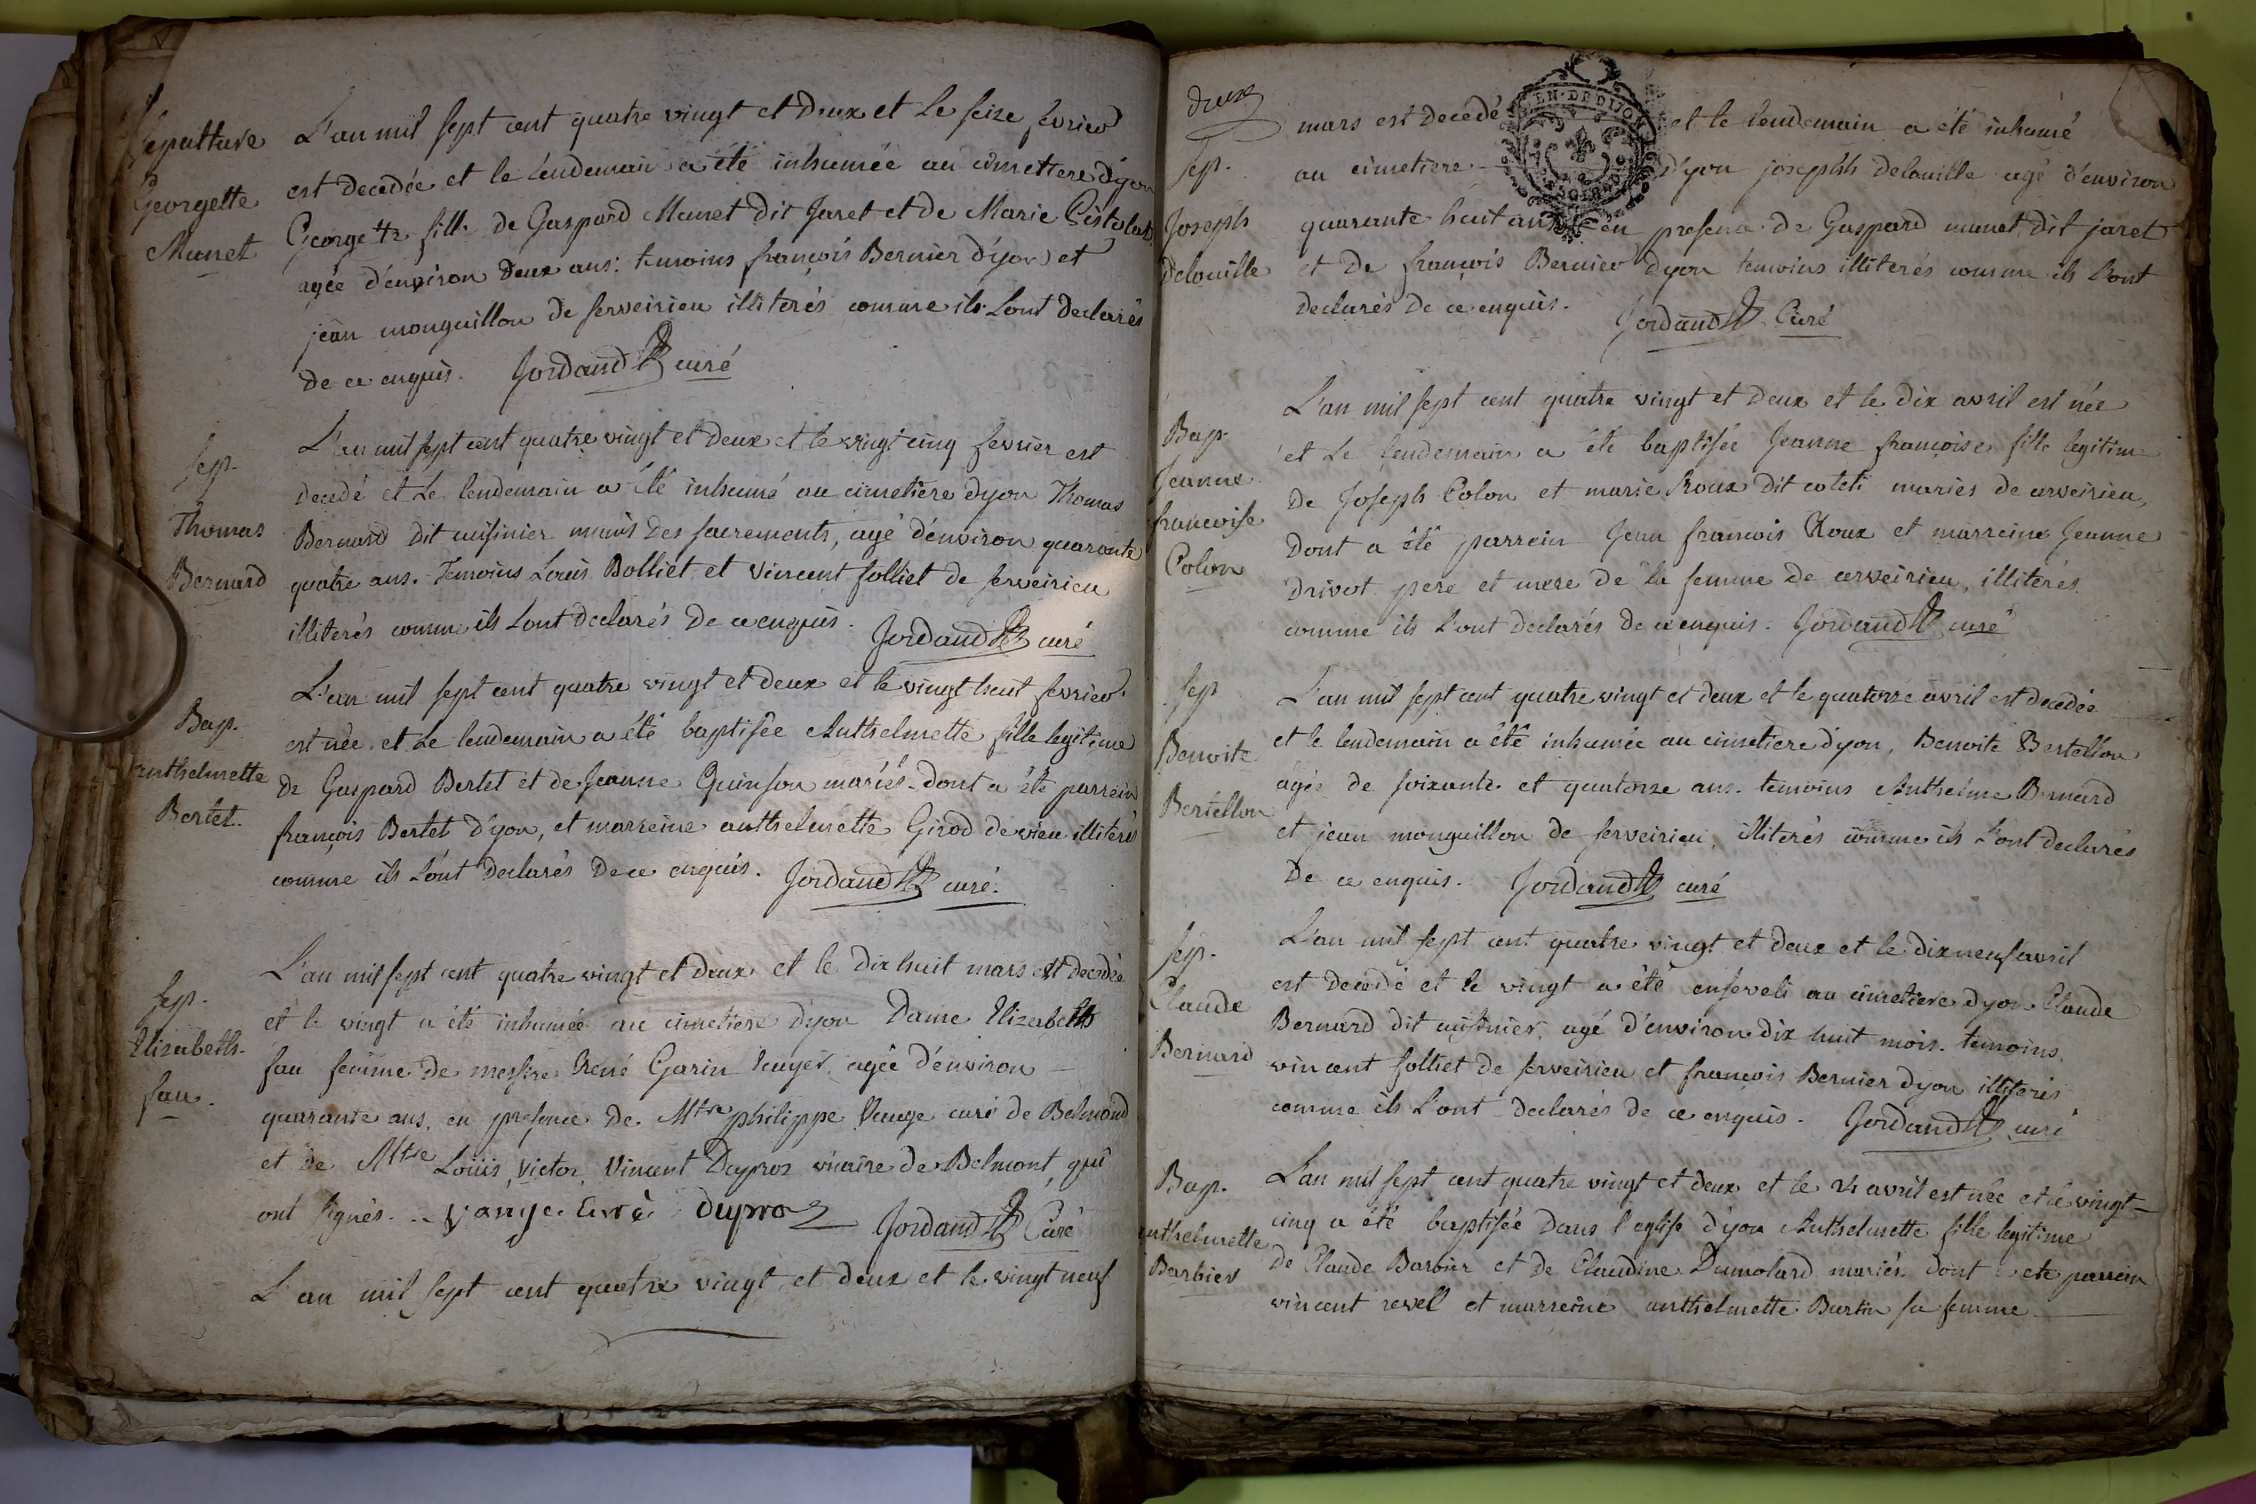 Sepulture
Georgette
Munet
L'an mil sept cent quatre vingt et deux et le seize fevrier
est decedée et le lendemain a été inhumée au cimetiere d'yon
Georgette fille de Gaspard Munet dit Jaret et de Marie
agée d'environ deux ans: temoins françois Bernier d'yon et
jean monguillon de serveirieu illiterés comme ils L'ont declarés
de ce enquis. Jordand curé
sep.
Thomas
Bernard
L'an mil sept cent quatre vingt et deux et le vingt cinq fevrier est
decedé et Le lendemain a été inhumé au cimetière d'yon Thomas
Bernard dit cuisinier munis des sacrements, agé d'environ quarante
quatre ans. Temoins Louis Bolliet et vincent folliet de serveirieu
illiterés comme ils L'ont declarés de ce enquis. Jordand curé
Bap.
anthelmette
Bertet.
L'an mil sept cent quatre vingt et deux et le vingt huit fevrier
est née et Le lendemain a été baptisée Anthelmette fille legitime
de Gaspard Bertet et de Jeanne Quinson mariés. dont a été parrein
françois Bertet d'yon, et marreine anthelmette Girod de vieu illiterés
comme ils L'ont declarés de ce enquis. Jordand curé.
sep.
Elizabeth
fau.
L'an mil sept cent quatre vingt et deux et le dix huit mars est decedée
et le vingt a été inhumée au cimetiere d'yon Dame Elizabeth
fau femme de messire René Garin Ecuyer, agée d'environ
quarante ans, en presence de Mtre philippe Vange curé de Belmond
et de Mtre Loüis, victor, Vincent Duproz vicaire de Belmont, qui
ont signés. Vange Curé Duproz Jordand Curé
L'an mil sept cent quatre vingt et deux et le vingt neuf
deux
EN. DE DIJON
mars est decedé et le lendemain a été inhumé
sep.
Joseph
delouille
au cimetiere d'yon joseph delouille agé d'environ
quarante huit ans en presence de Gaspard munet dit jaret
et de françois Bernier d'yon temoins illiterés comme ils L'ont
declarés de ce enquis. Jordand Curé
Bap.
Jeanne
francoise
Colon
L'an mil sept cent quatre vingt et deux et le dix avril est née
et Le lendemain a été baptisée Jeanne françoise fille legitime
de Joseph Colon et marie Roux dit mariés de cerveirieu,
dont a été parrein Jean francois Roux et marreine Jeanne
drivot pere et mere de la femme de cerveirieu, illiterés
comme ils L'ont declarés de ce enquis. Jordand curé
sep
Benoite
Bertellon
L'an mil sept cent quatre vingt et deux et le quatorze avril est decedée
et le lendemain a été inhumée au cimetiere d'yon, Benoite Bertellon
agée de soixante et quatorze ans. temoins Anthelme Bernard
et jean monguillon de serveirieu, illiterés comme ils L'ont declarés
de ce enquis. Jordand curé
sep.
Claude
Bernard
L'an mil sept cent quatre vingt et deux et le dix neuf avril
est decedé et le vingt a été enseveli au cimetiere d'yon Claude
Bernard dit cuisinier, agé d'environ dix huit mois. temoins
vincent folliet de serveirieu et francois Bernier d'yon illiterés
comme ils L'ont declarés de ce enquis. Jordand curé
Bap.
anthelmette
Barbier
L'an mil sept cent quatre vingt et deux et le 24 avril est née et le vingt
cinq a été baptisée dans l'eglise d'yon Anthelmette fille legitime
de Claude Barbier et de Claudine Dumolard mariés dont a eté parrein
vincent revel et marreine anthelmette Burtin sa femme